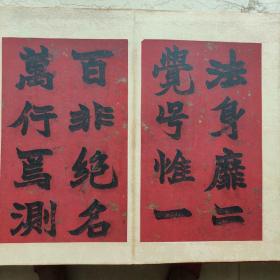 法身靡二
覺号惟一
百非絶名
萬行焉測